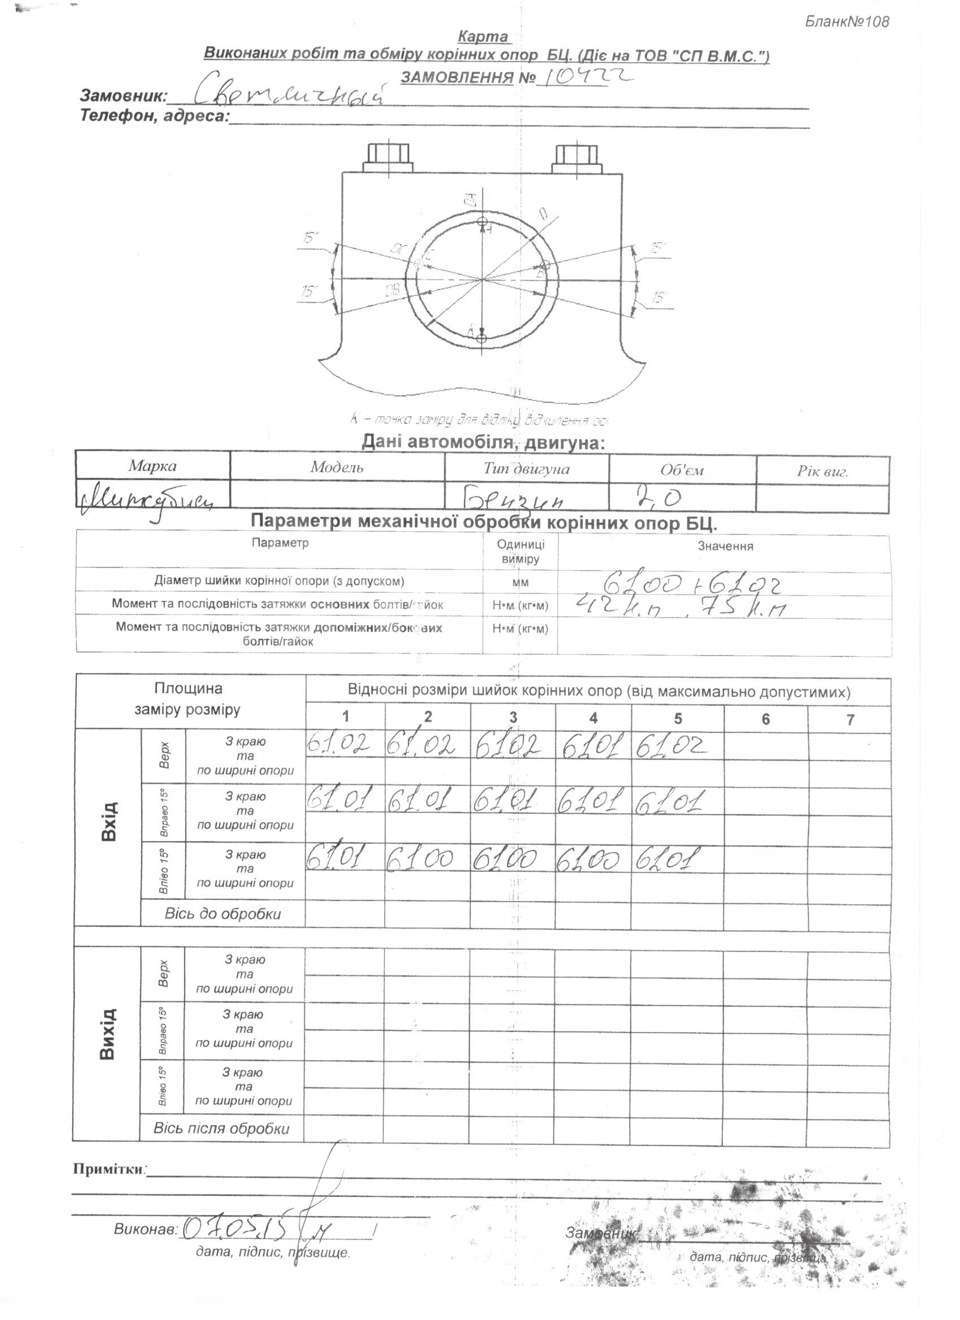 Бланк№108
Карта
Виконаних робіт та обміру корінних опор БЦ. (Діє на ТОВ "СП В.М.С.")
ЗАМОВЛЕННЯ № 10422
Замовник: Светличный
Телефон, адреса:
DA
D
A
15°
DC
C
B
15°
15°
DB
15°
К
К – точка заміру для відліку відхилення осі
Дані автомобіля, двигуна:
Марка Модель Тип двигуна Об'єм Рік виг.
Бензин 2,0
Параметри механічної обробки корінних опор БЦ.
Параметр Одиниці виміру Значення
Діаметр шийки корінної опори (з допуском) мм 61.00 + 61.02
Момент та послідовність затяжки основних болтів/гайок Н•м (кг•м) 42 н.м 75 н.м
Момент та послідовність затяжки допоміжних/бокових болтів/гайок Н•м (кг•м)
Площина заміру розміру Відносні розміри шийок корінних опор (від максимально допустимих)
1 2 3 4 5 6 7
Вхід
Верх З краю та по ширині опори 61.02 61.02 61.02 61.01 61.02
Вправо 15° З краю та по ширині опори 61.01 61.01 61.01 61.01 61.01
Вліво 15° З краю та по ширині опори 61.01 61.00 61.00 61.00 61.01
Вісь до обробки
Вихід
Верх З краю та по ширині опори
Вправо 15° З краю та по ширині опори
Вліво 15° З краю та по ширині опори
Вісь після обробки
Примітки:
Виконав: 07.05.15 / Замовник:
дата, підпис, прізвище. дата, підпис, прізвище.